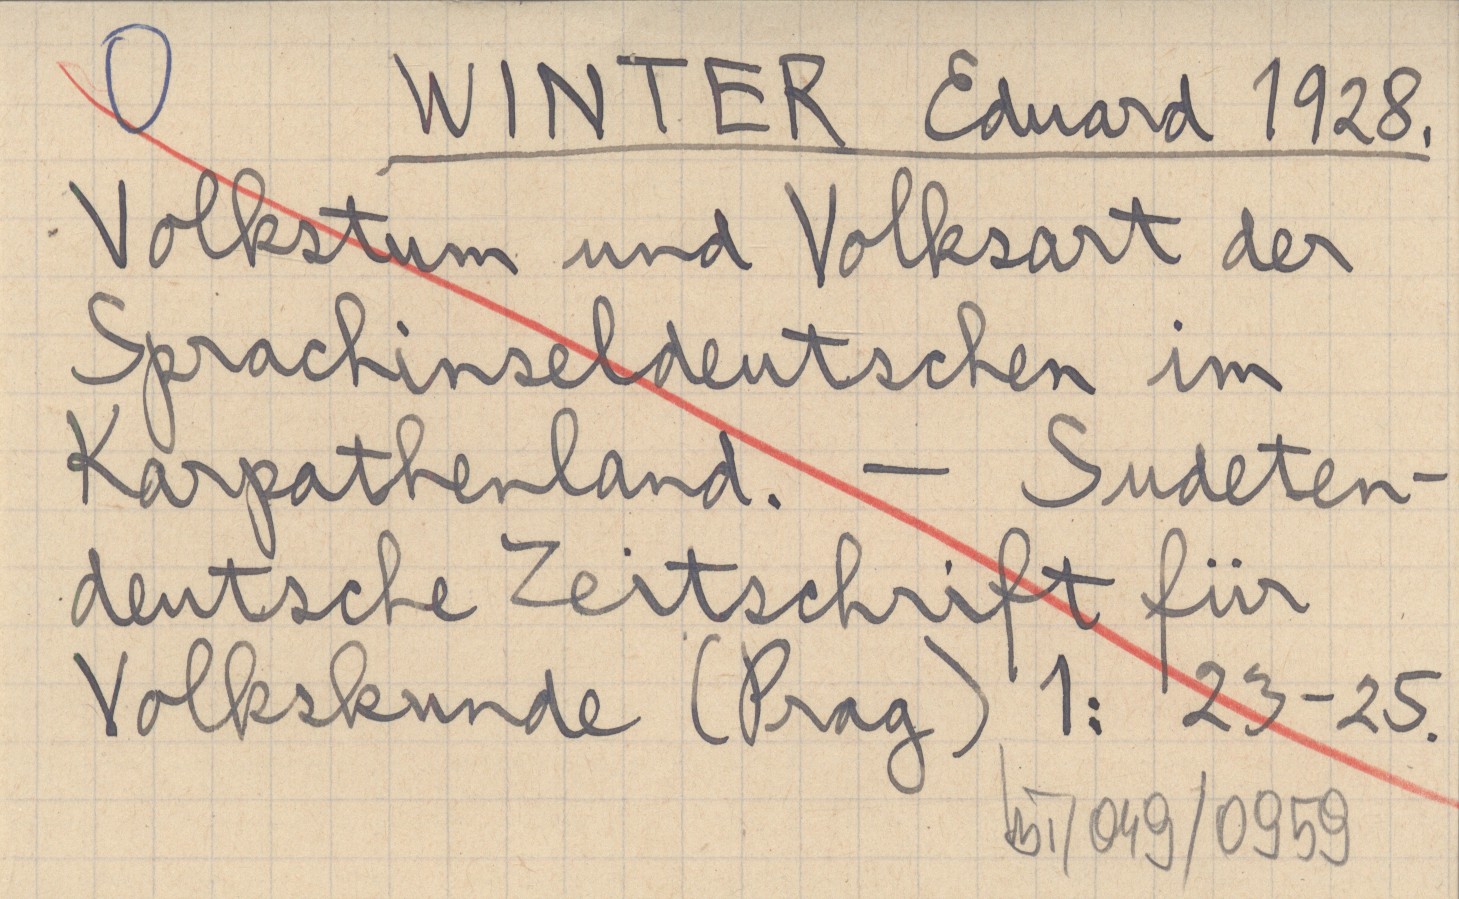 O WINTER Eduard 1928.
Volkstum und Volksart der
Sprachinseldeutschen im
Karpathenland. — Sudeten-
deutsche Zeitschrift für
Volkskunde (Prag) 1: 23-25.
/049/0959